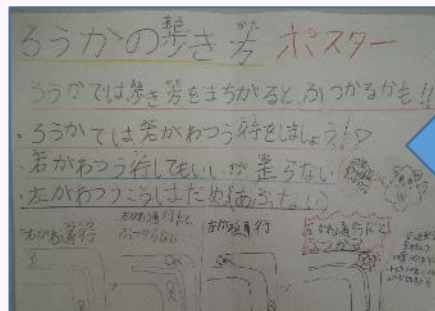 ろうかの歩き方 ポスター
ろうかでは、歩き方をまちがると、ぶつかるかも!!
・ろうかでは、右がわつう行をしましょう!
・右がわつう行してもいいが走らない
・左がわつうこうはだめ(あぶない)
右がわ通行
右がわ通行だと
ぶつからない
左がわ通行
左がわ通行だと
ぶつかる